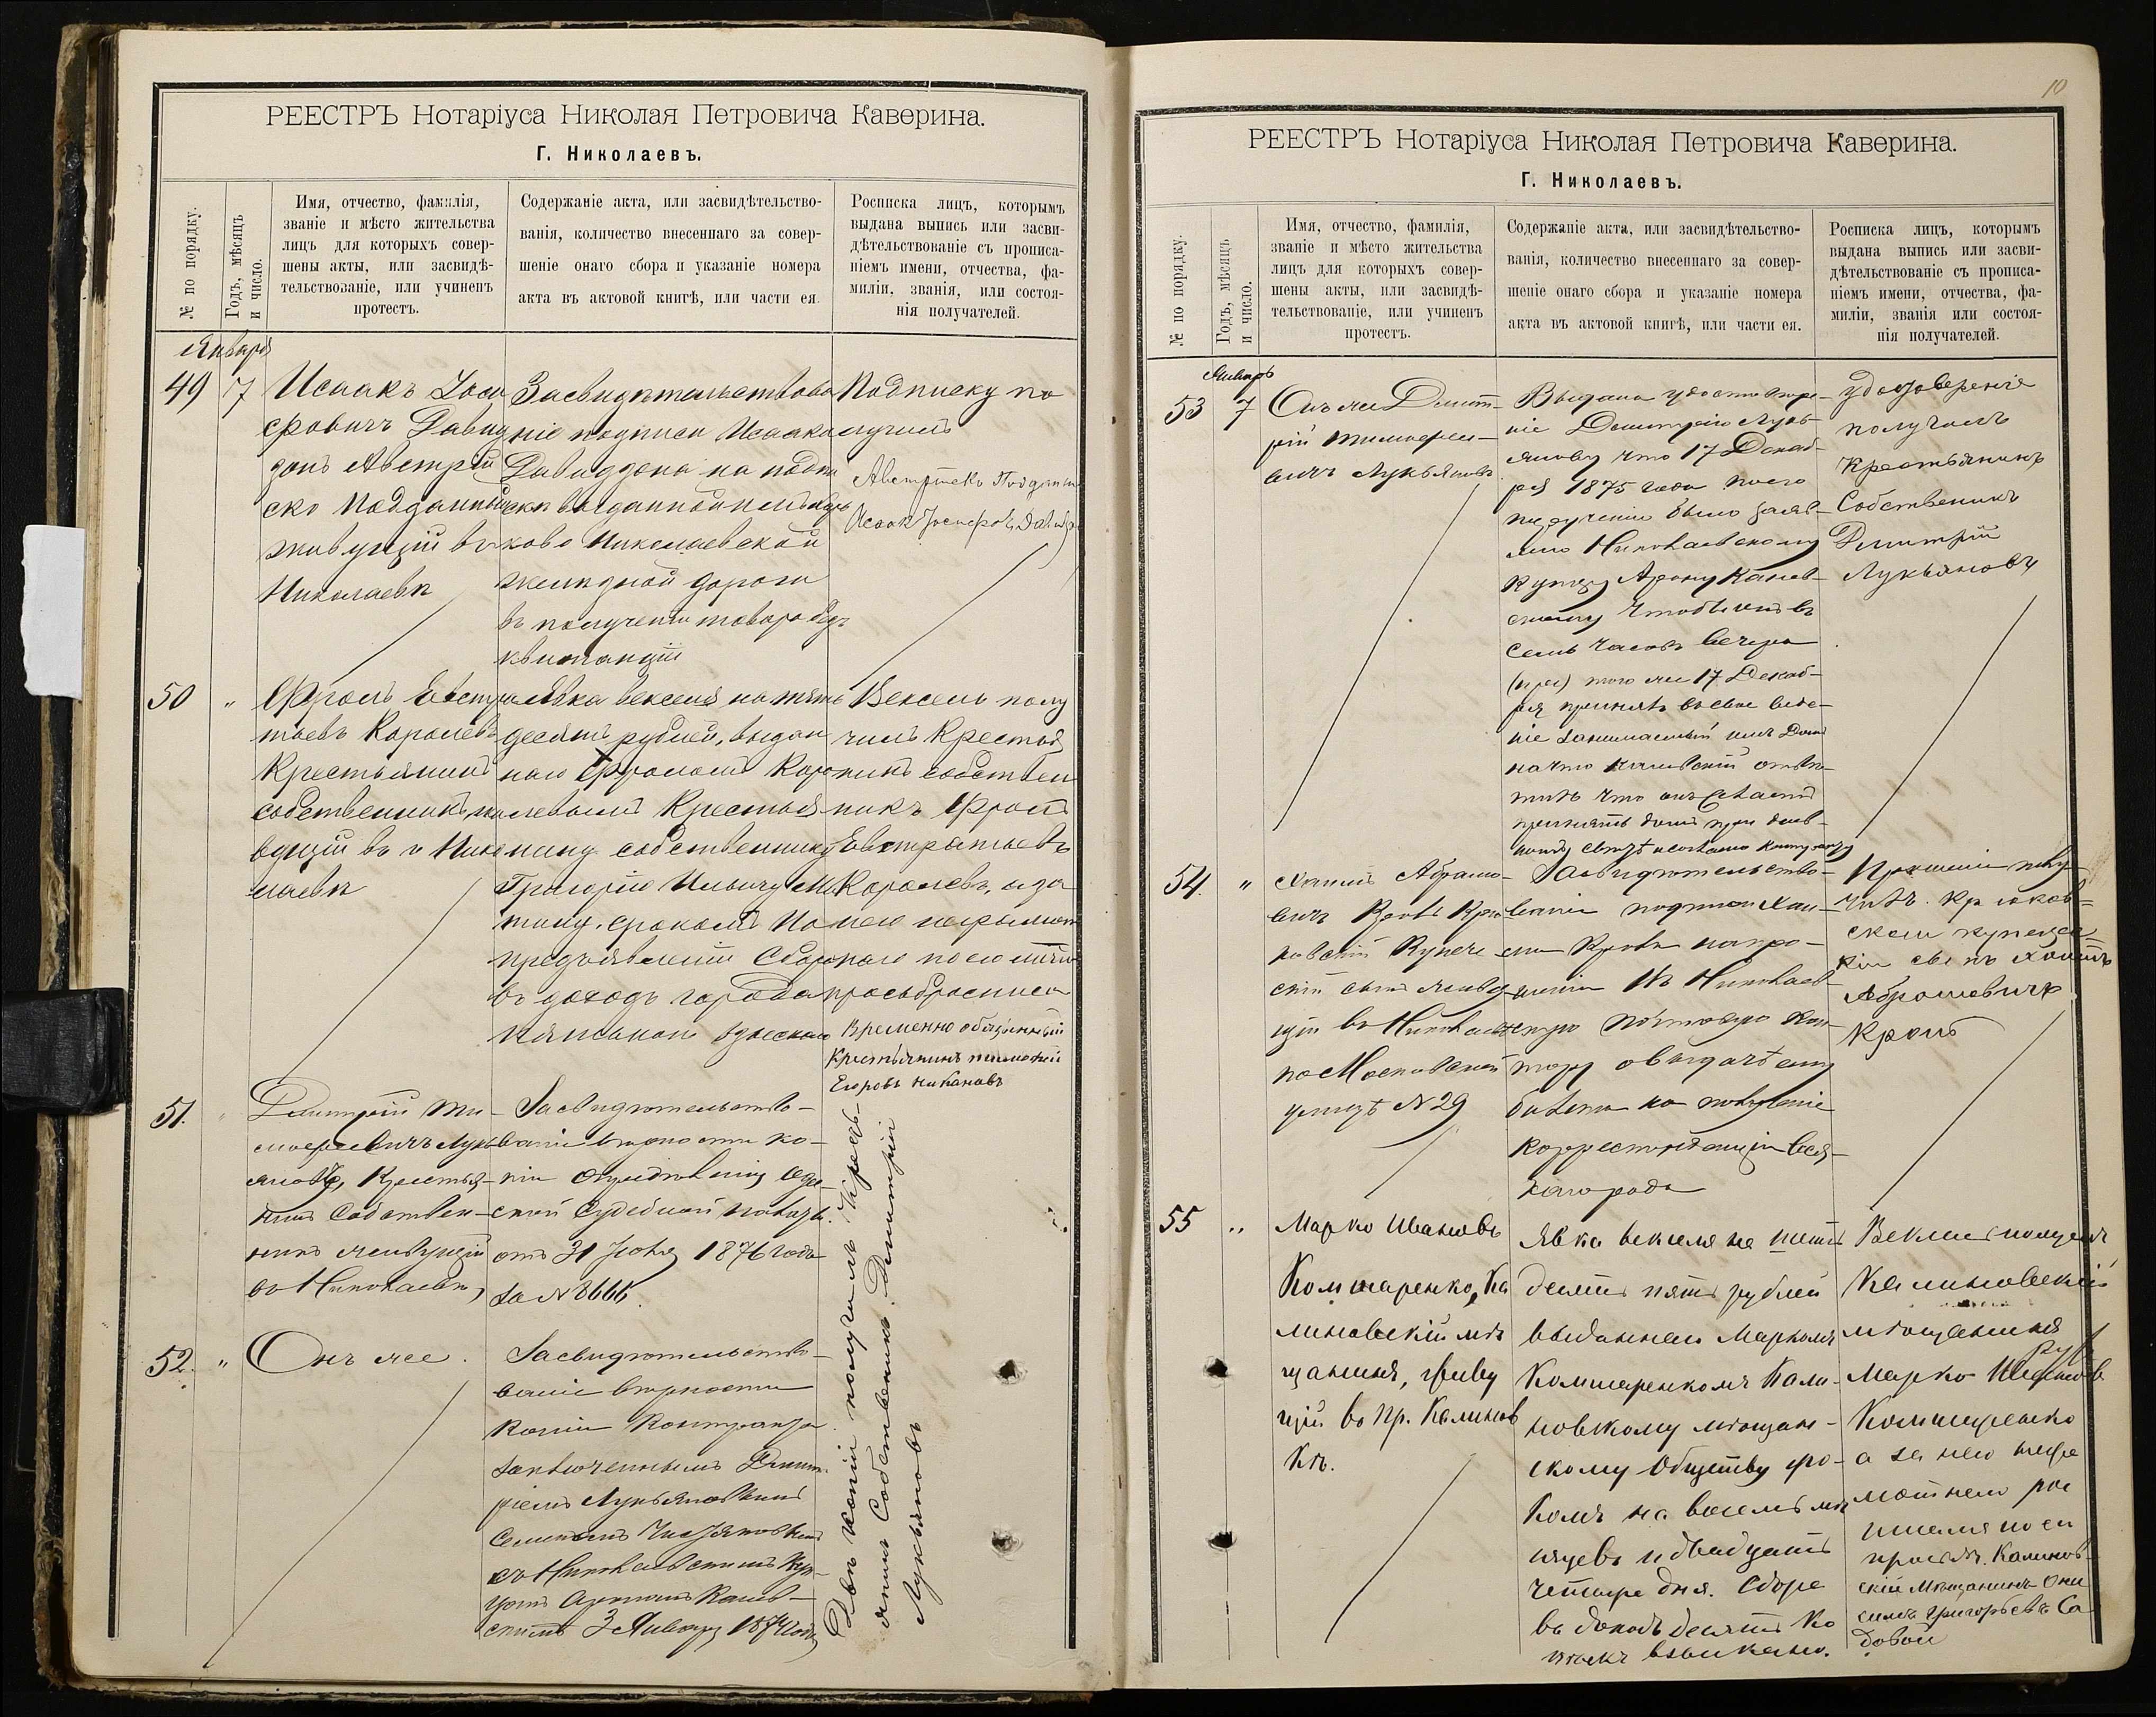 РЕЕСТРЪ Нотаріуса Николая Петровича Каверина.
Г. Николаевъ.
№ по порядку.
Годъ, мѣсяцъ
и число.
Имя, отчество, фамилія,
званіе и мѣсто жительства
лицъ для которыхъ совер-
шены акты, или засвидѣ-
тельствованіе, или учиненъ
протестъ.
Содержаніе акта, или засвидѣтельство-
ванія, количество внесеннаго за совер-
шеніе онаго сбора и указаніе номера
акта въ актовой книгѣ, или части ея.
Росписка лицъ, которымъ
выдана выпись или засви-
дѣтельствованіе съ прописа-
ніемъ имени, отчества, фа-
миліи, званія, или состоя-
нія получателей.
Января
49
7
Исаакъ Іоси
фовичъ Давид
зонъ Австрій
ско подданный
живущій въ
Николаевѣ
Засвидѣтельствова
ніе подписи Исаака
Давидзона на подпи
ски выданной
Николаевской
желѣзной дороги
въ полученіи товара безъ
квитанціи
Подписку по
лучилъ
Австрійско Поддан
Исаак Іосифов Давидзон
50
"
Фролъ Евстра
тьевъ Королевъ
Крестьянинъ
собственникъ, жи
вущій въ г Нико
лаевѣ
Явка векселя на пять
десятъ рублей, выдан
наго Фроломъ Коро
левымъ Крестья
нину собственнику
Григорію Ильичу
срокомъ По
предъявленіи Сборъ
въ доходъ города
Вексель полу
чилъ Крестья
нинъ собствен
никъ Фролъ
Евстратьевъ
Королевъ, а за
него неграмот
наго по его личной
просьбѣ росписа
Временно обязанный
Крестьянинъ
Егоровъ
51.
"
Дмитрій Ти
мофеевичъ Лукь
яновъ, Крестья-
нинъ Собствен-
никъ живущій
въ Николаевѣ,
Засвидѣтельство-
ваніе вѣрности ко-
піи опредѣленія Одес-
ской Судебной Палаты
отъ 31 Іюля 1876 года
за № 8666.
52.
"
Онъ же.
Засвидѣтельство-
ваніе вѣрности
копіи Контракта
заключеннымъ Дмит-
ріемъ Лукьяновымъ
съ Николаевскимъ Куп-
цомъ Арономъ Канев-
скимъ 3 Января 1874 года
Двѣ копіи получилъ Кресть-
янинъ Собственникъ Дмитрій
Лукьяновъ
10
РЕЕСТРЪ Нотаріуса Николая Петровича Каверина.
Г. Николаевъ.
№ по порядку.
Годъ, мѣсяцъ
и число.
Имя, отчество, фамилія,
званіе и мѣсто жительства
лицъ для которыхъ совер-
шены акты, или засвидѣ-
тельствованіе, или учиненъ
протестъ.
Содержаніе акта, или засвидѣтельство-
ванія, количество внесеннаго за совер-
шеніе онаго сбора и указаніе номера
акта въ актовой книгѣ, или части ея.
Росписка лицъ, которымъ
выдана выпись или засви-
дѣтельствованіе съ прописа-
ніемъ имени, отчества, фа-
миліи, званія или состоя-
нія получателей.
Январь
53
7
Онъ же Дмит-
рій Тимофее-
вичъ Лукьяновъ
Выдано удостовере-
ніе Дмитрію Лукь-
янову что 17 Декаб-
ря 1875 года по его
порученію было заяв-
лено Николаевскому
Купцу Арону Канев-
скому чтобы онъ въ
семь часовъ вечера
того же 17 Декаб-
ря принялъ въ свое веде-
ніе занимаемый имъ Домъ
на что Каневскій отвѣ-
тилъ что онъ
принять домъ при
Удостовереніе
получилъ
Крестьянинъ
Собственникъ
Дмитрій
Лукьяновъ
54.
"
Хаимъ Абрамо-
вичъ Кролъ Крю
ковскій Купече
скій сынъ живу
щій въ Николаевѣ
по Московской
улицѣ № 29
Засвидѣтельство-
ваніе подписи Хаи-
ма Крола на про-
шеніи въ Николаев-
скую Почтовую Кон-
тору о выдачѣ ему
билета на полученіе
корреспонденціи вся-
каго рода
Прошеніе полу-
чилъ. Крюков-
скій купече
скій сынъ Хаимъ
Абрамовичъ
Кролъ
55
"
Марко Ивановъ
Комшаренко, Ка
линовскій мѣ
щанинъ, живу
щій въ пр. Калинов
кѣ.
Явка векселя на шесть
десятъ пять рублей
выданнаго Маркомъ
Комшаренкомъ Кали-
новскому мѣщан-
скому обществу сро-
комъ на восемь мѣ
сяцевъ и двадцать
четыре дня. Сбора
въ доходъ десять ко
пѣекъ взыскано.
Вексель получилъ
Калиновскій
мѣщанинъ
Марко
Комшаренко
а за него негра
мотнаго рос
писался по его
просьбѣ. Калинов-
скій Мѣщанинъ Они
симъ Григорьевъ Са
довой